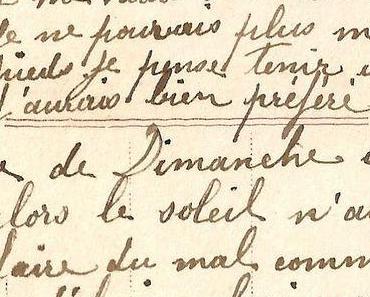 ne pouvais plus m
pieds je pense tenir
j'aurais bien préféré
de Dimanche
alors le soleil n'a
faire du mal comm